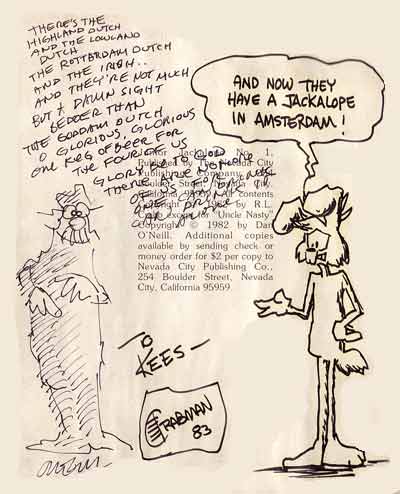 THERE'S THE
HIGHLAND DUTCH
AND THE LOWLAND
DUTCH
THE ROTTERDAM DUTCH
AND THE IRISH..
AND THEY'RE NOT MUCH
BUT A DAMN SIGHT
BEDDER THAN
THE GODDAM DUTCH
O GLORIOUS, GLORIOUS
ONE KEG OF BEER FOR
THE FOUR OF US
GLORY BE TO GOD
THERE
AND NOW THEY
HAVE A JACKALOPE
IN AMSTERDAM!
Junior Jackalope No. 1,
Published by The Nevada City
Publishing Company, 254
Boulder Street, Nevada City,
California 95959. All contents
copyright 1982 by R.L.
Crabb except for "Uncle Nasty"
Copyright © 1982 by Dan
O'Neill. Additional copies
available by sending check or
money order for $2 per copy to
Nevada City Publishing Co.,
254 Boulder Street, Nevada
City, California 95959
TO
KEES—
CRABMAN
83